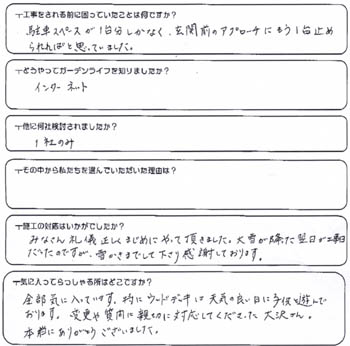 工事をされる前に困っていたことは何ですか?
駐車スペースが1台分しかなく、玄関前のアプローチにもう1台止め
られればと思っていました。
どうやってガーデンライフを知りましたか?
インターネット
他に何社検討されましたか?
1社のみ
その中から私たちを選んでいただいた理由は?
施工の対応はいかがでしたか?
みなさん礼儀正しくまじめにやって頂きました。大雪が降った翌日が工事
だったのですが、雪かきまでして下さり感謝しております。
気に入ってらっしゃる所はどこですか?
全部気に入っています。特にウッドデッキは天気の良い日に子供と遊んで
おります。変更や質問に親切に対応してくださった大沢さん。
本当にありがとうございました。